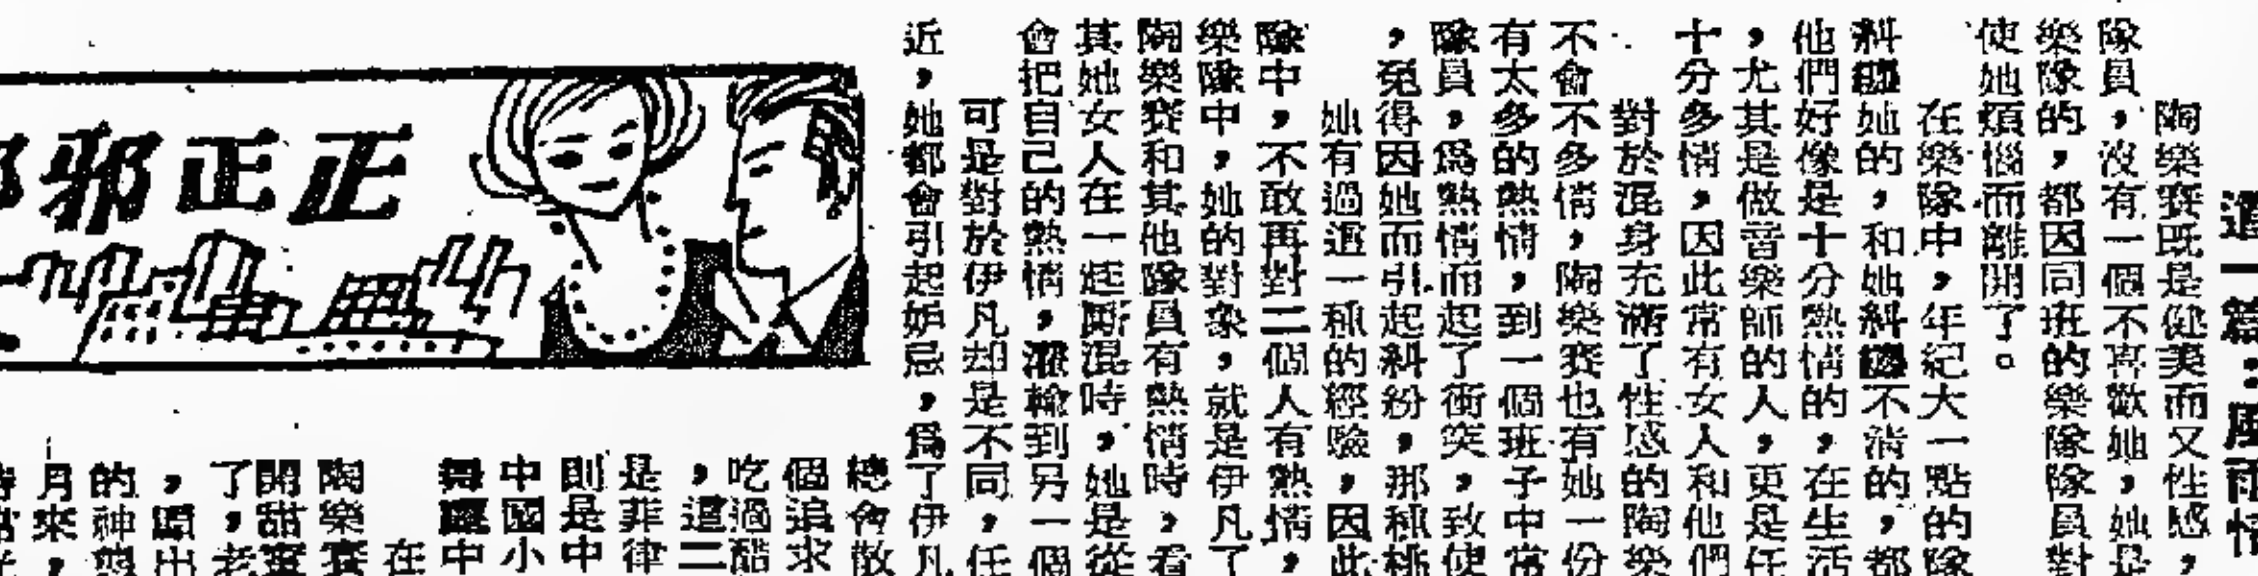 這一篇：風雨情
陶樂賽既是健美而又性感，
隊員，沒有一個不喜歡她，她是
樂隊的，都因同班的樂隊隊員對
使她煩惱而離開了。
在樂隊中，年紀大一點的隊
糾纏她的，和她糾纏不清的，都
他們好像是十分熱情的，在生活
，尤其是做音樂師的人，更是任
十分多情，因此常有女人和他們
對於混身充滿了性感的陶樂
不會不多情，陶樂賽也有她一份
有太多的熱情，到一個班子中常
隊員，爲熱情而起了衝突，致使
，免得因她而引起糾紛，那種桃
她有過這一種的經驗，因此
隊中，不敢再對二個人有熱情，
樂隊中，她的對象，就是伊凡了
陶樂賽和其他隊員有熱情時，看
其她女人在一起厮混時，她是從
會把自己的熱情，灌輸到另一個
可是對於伊凡却是不同，任
近，她都會引起妒忌，爲了伊凡
正正邪
總會散
個追求
吃過醋
，這二
是菲律
則是中
中國小
舞廳中
在
陶樂賽
開甜蜜
了，老
，露出
的神態
月來，